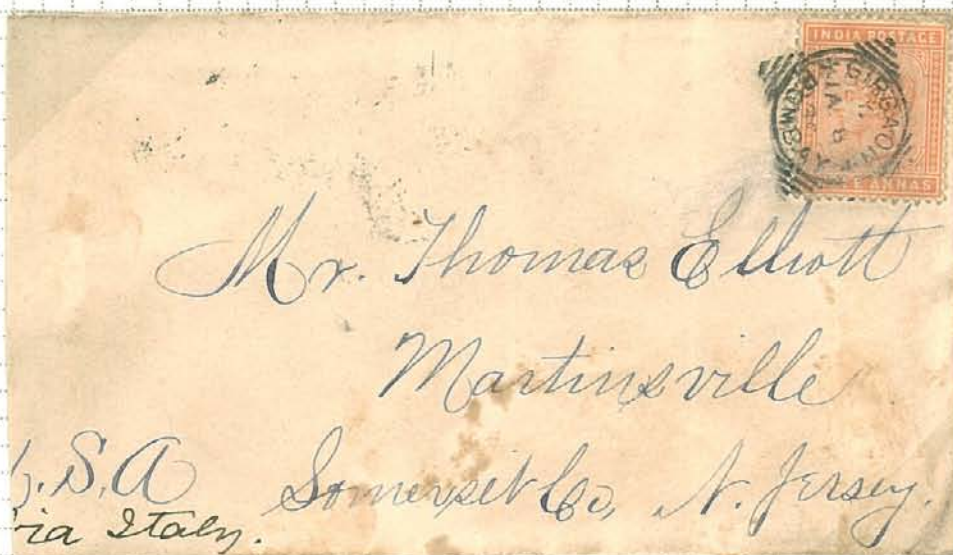 INDIA POSTAGE
ANNAS
GIRGAON
BOMBAY
Mr. Thomas Elliott
Martinsville
Somerset Co, N. Jersey.
.S.A
ia Italy.